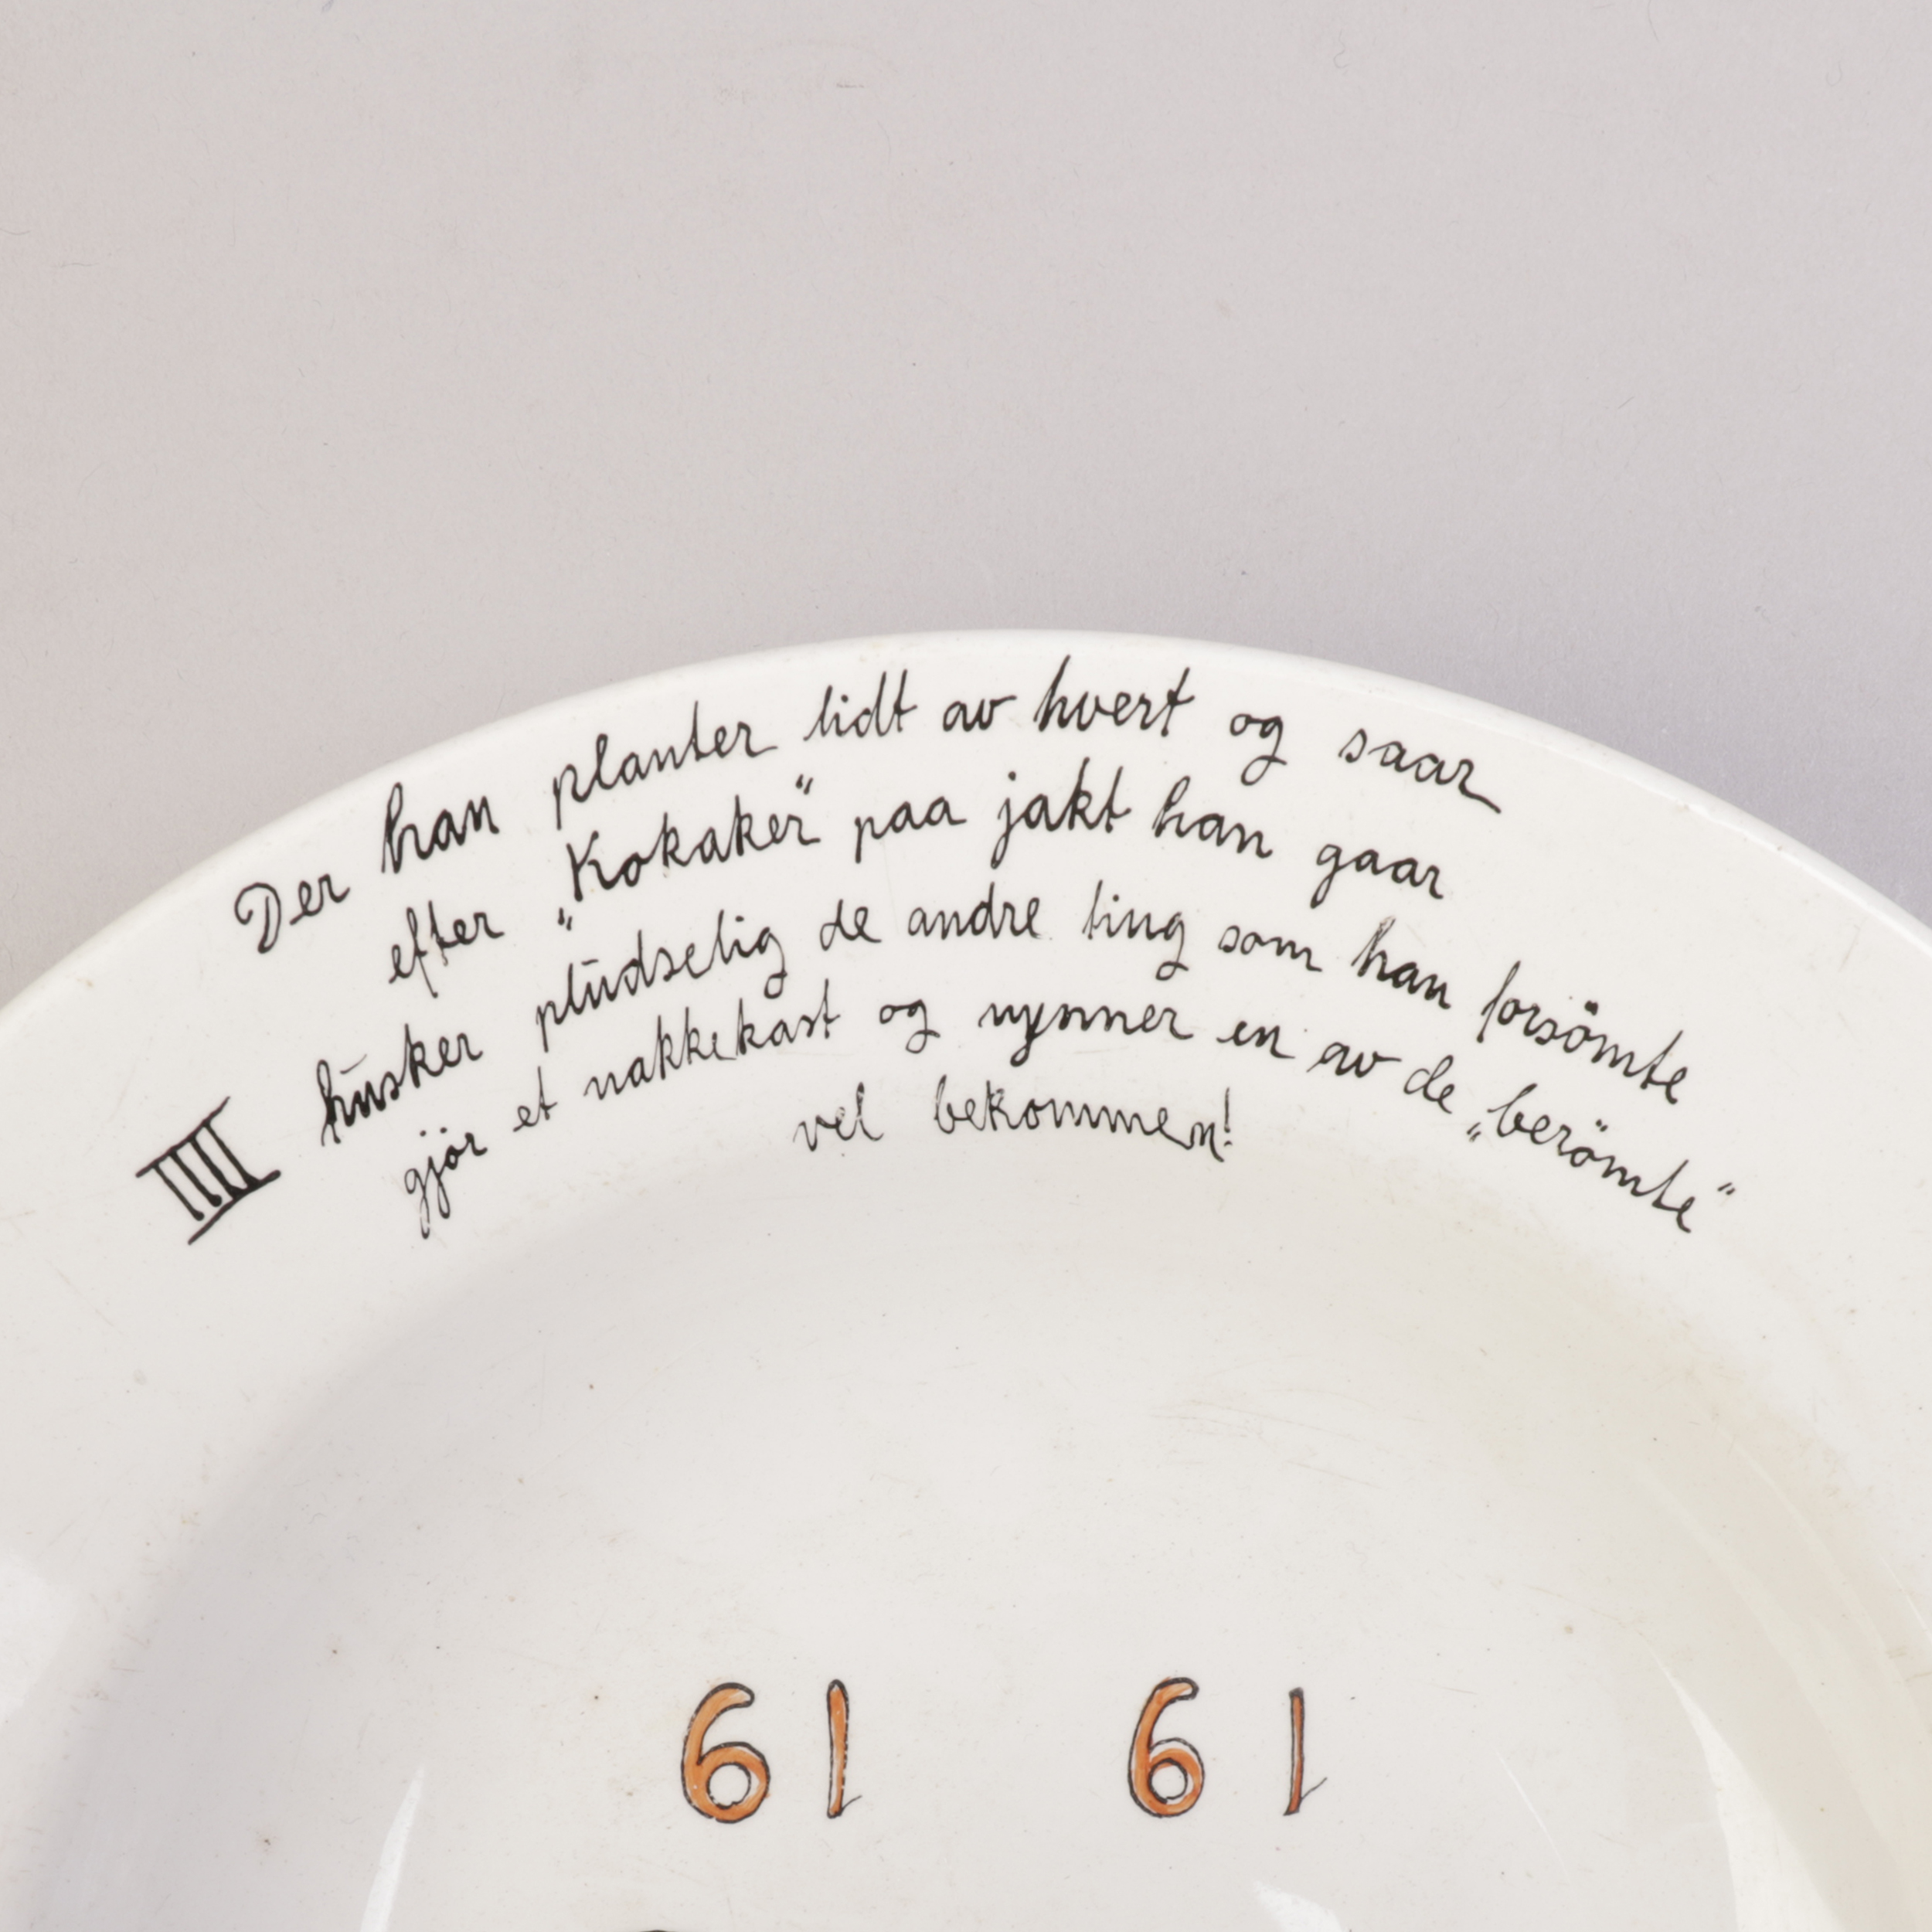 Der han planter lidt av hvert og saar
efter „Kokaker“ paa jakt han gaar
husker pludselig de andre ting som han forsömte
gjör et nakkekast og nynner en av de „berömte“
vel bekommen!
IIII
19 19